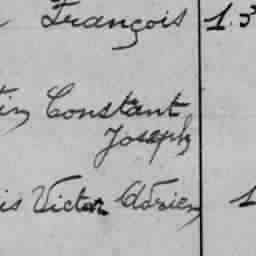 François 1.3
Constant
Joseph
is Victor Adrien 1